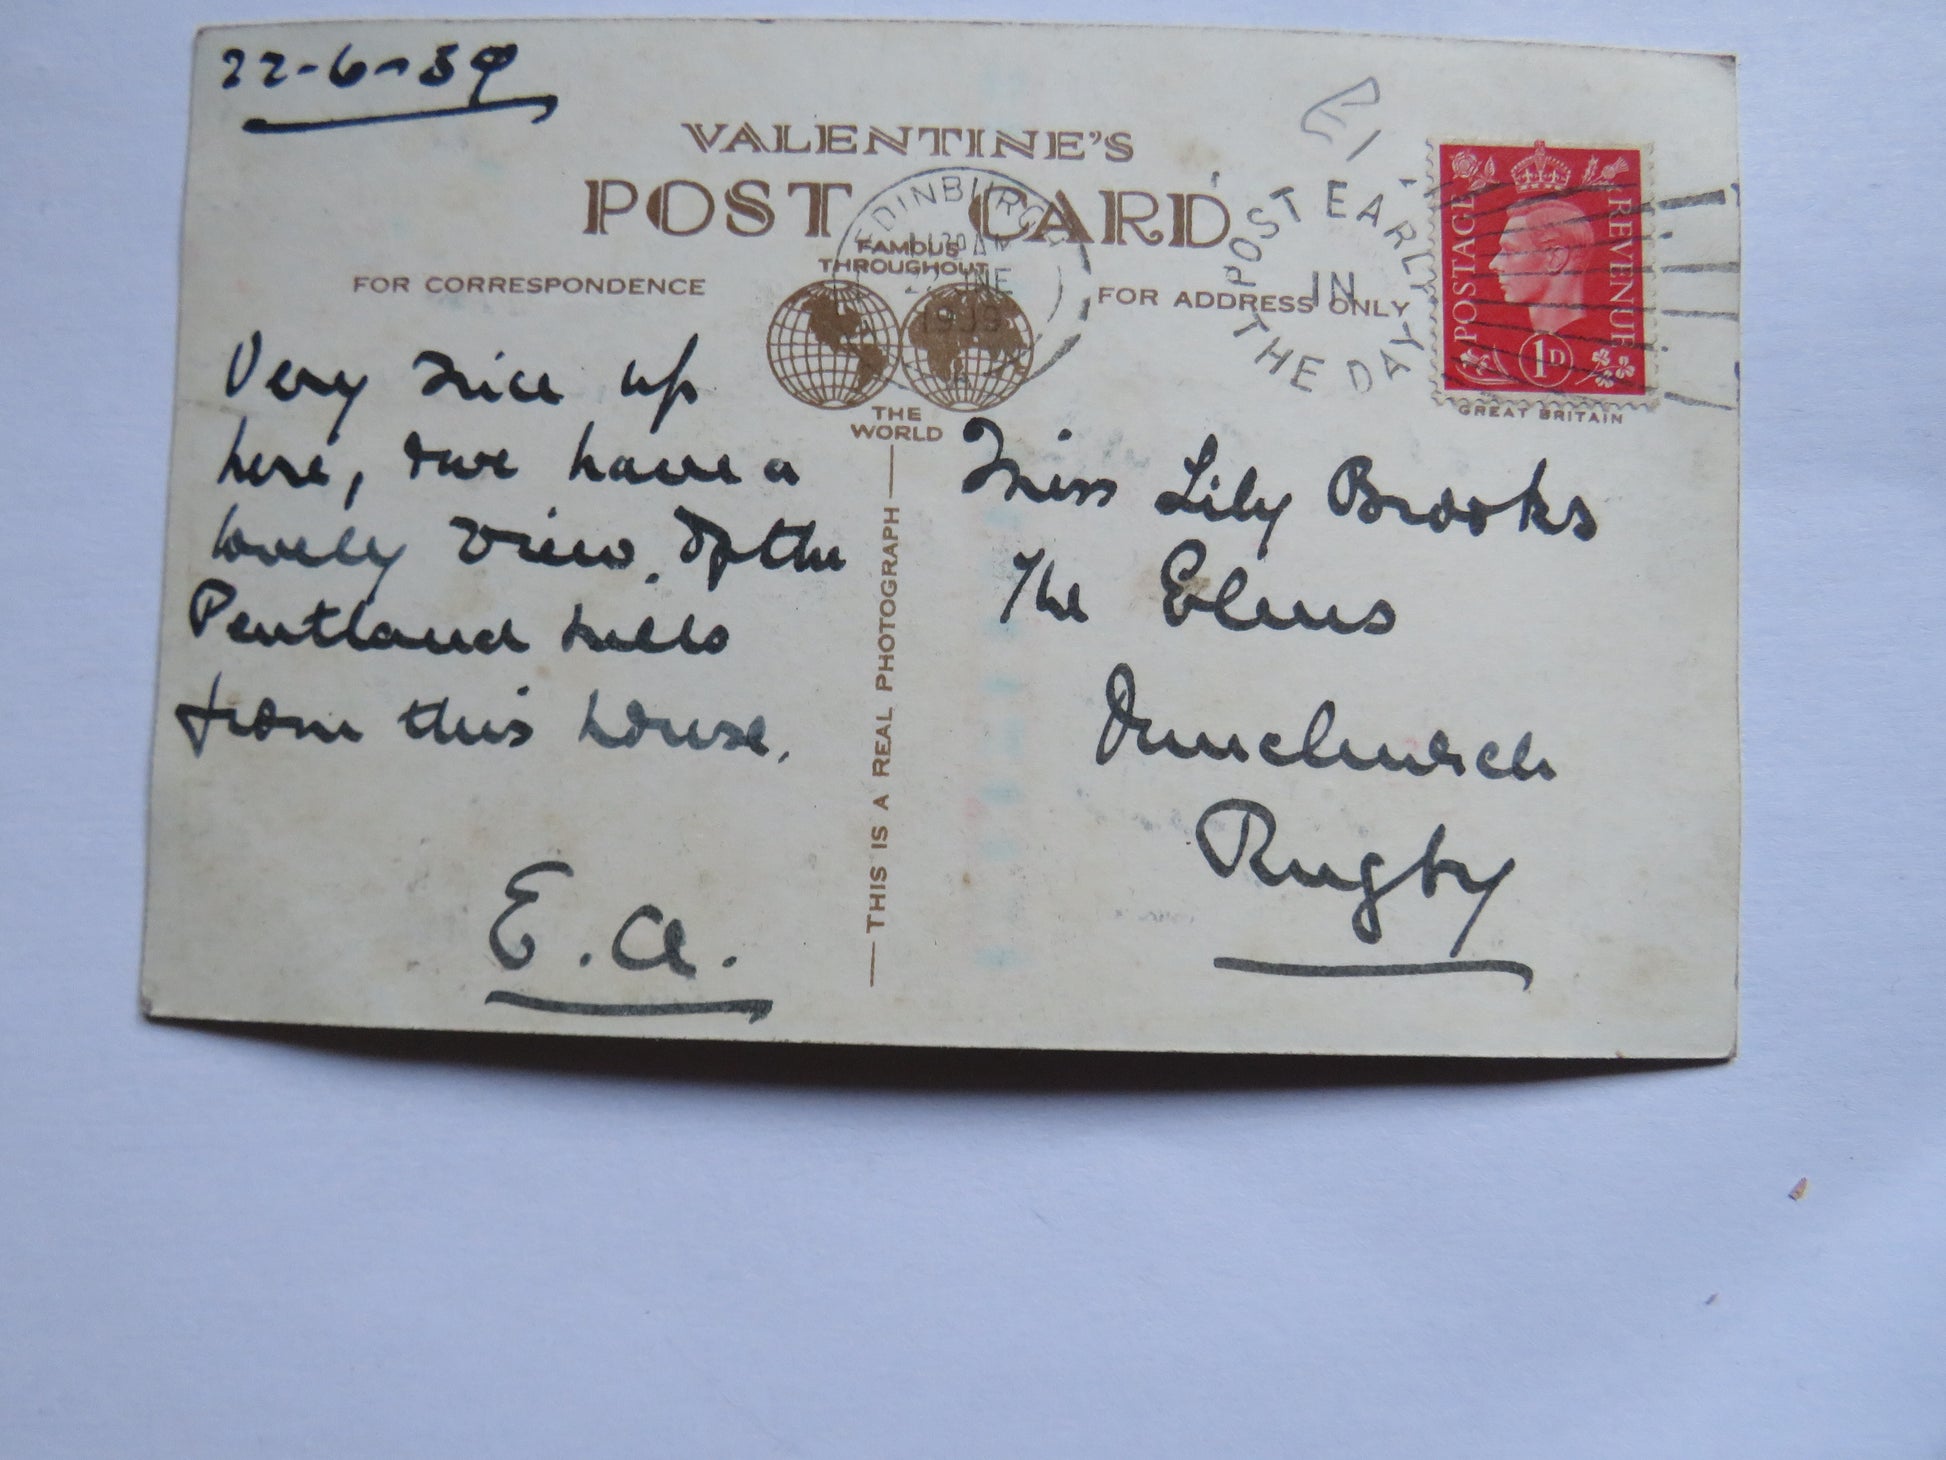 22-6-39
VALENTINE'S
POST CARD
EDINBURGH
JUNE
1939
FAMOUS
THROUGHOUT
THE
WORLD
FOR CORRESPONDENCE
FOR ADDRESS ONLY
POST EARLY
IN
THE DAY
POSTAGE
REVENUE
1D
GREAT BRITAIN
£1
Very nice up
here, & we have a
lovely view of the
Pentland hills
from this house.
E.A.
THIS IS A REAL PHOTOGRAPH
Miss Lily Brooks
The Elms
Dunchurch
Rugby